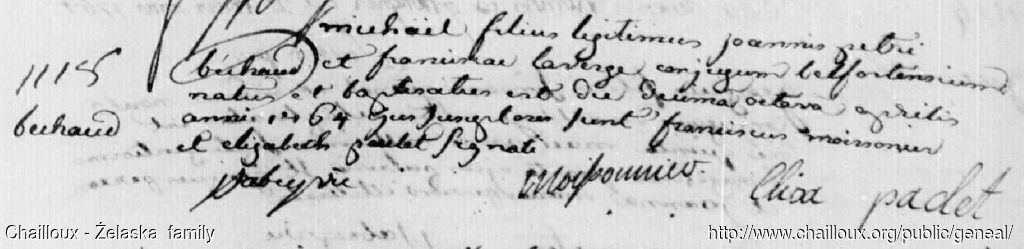 michaël filius legitimus joannis petri
1115 béchaud et franciscae laverge conjugum belfortensium
natus et baptisatus est die decima octava aprilis
bechaud anni 1764 ejus susceptores sunt franciscus moissonier
et elizabeth padet signati
moissonnier Elisa padet
Chailloux - Żelaska family http://www.chailloux.org/public/geneal/